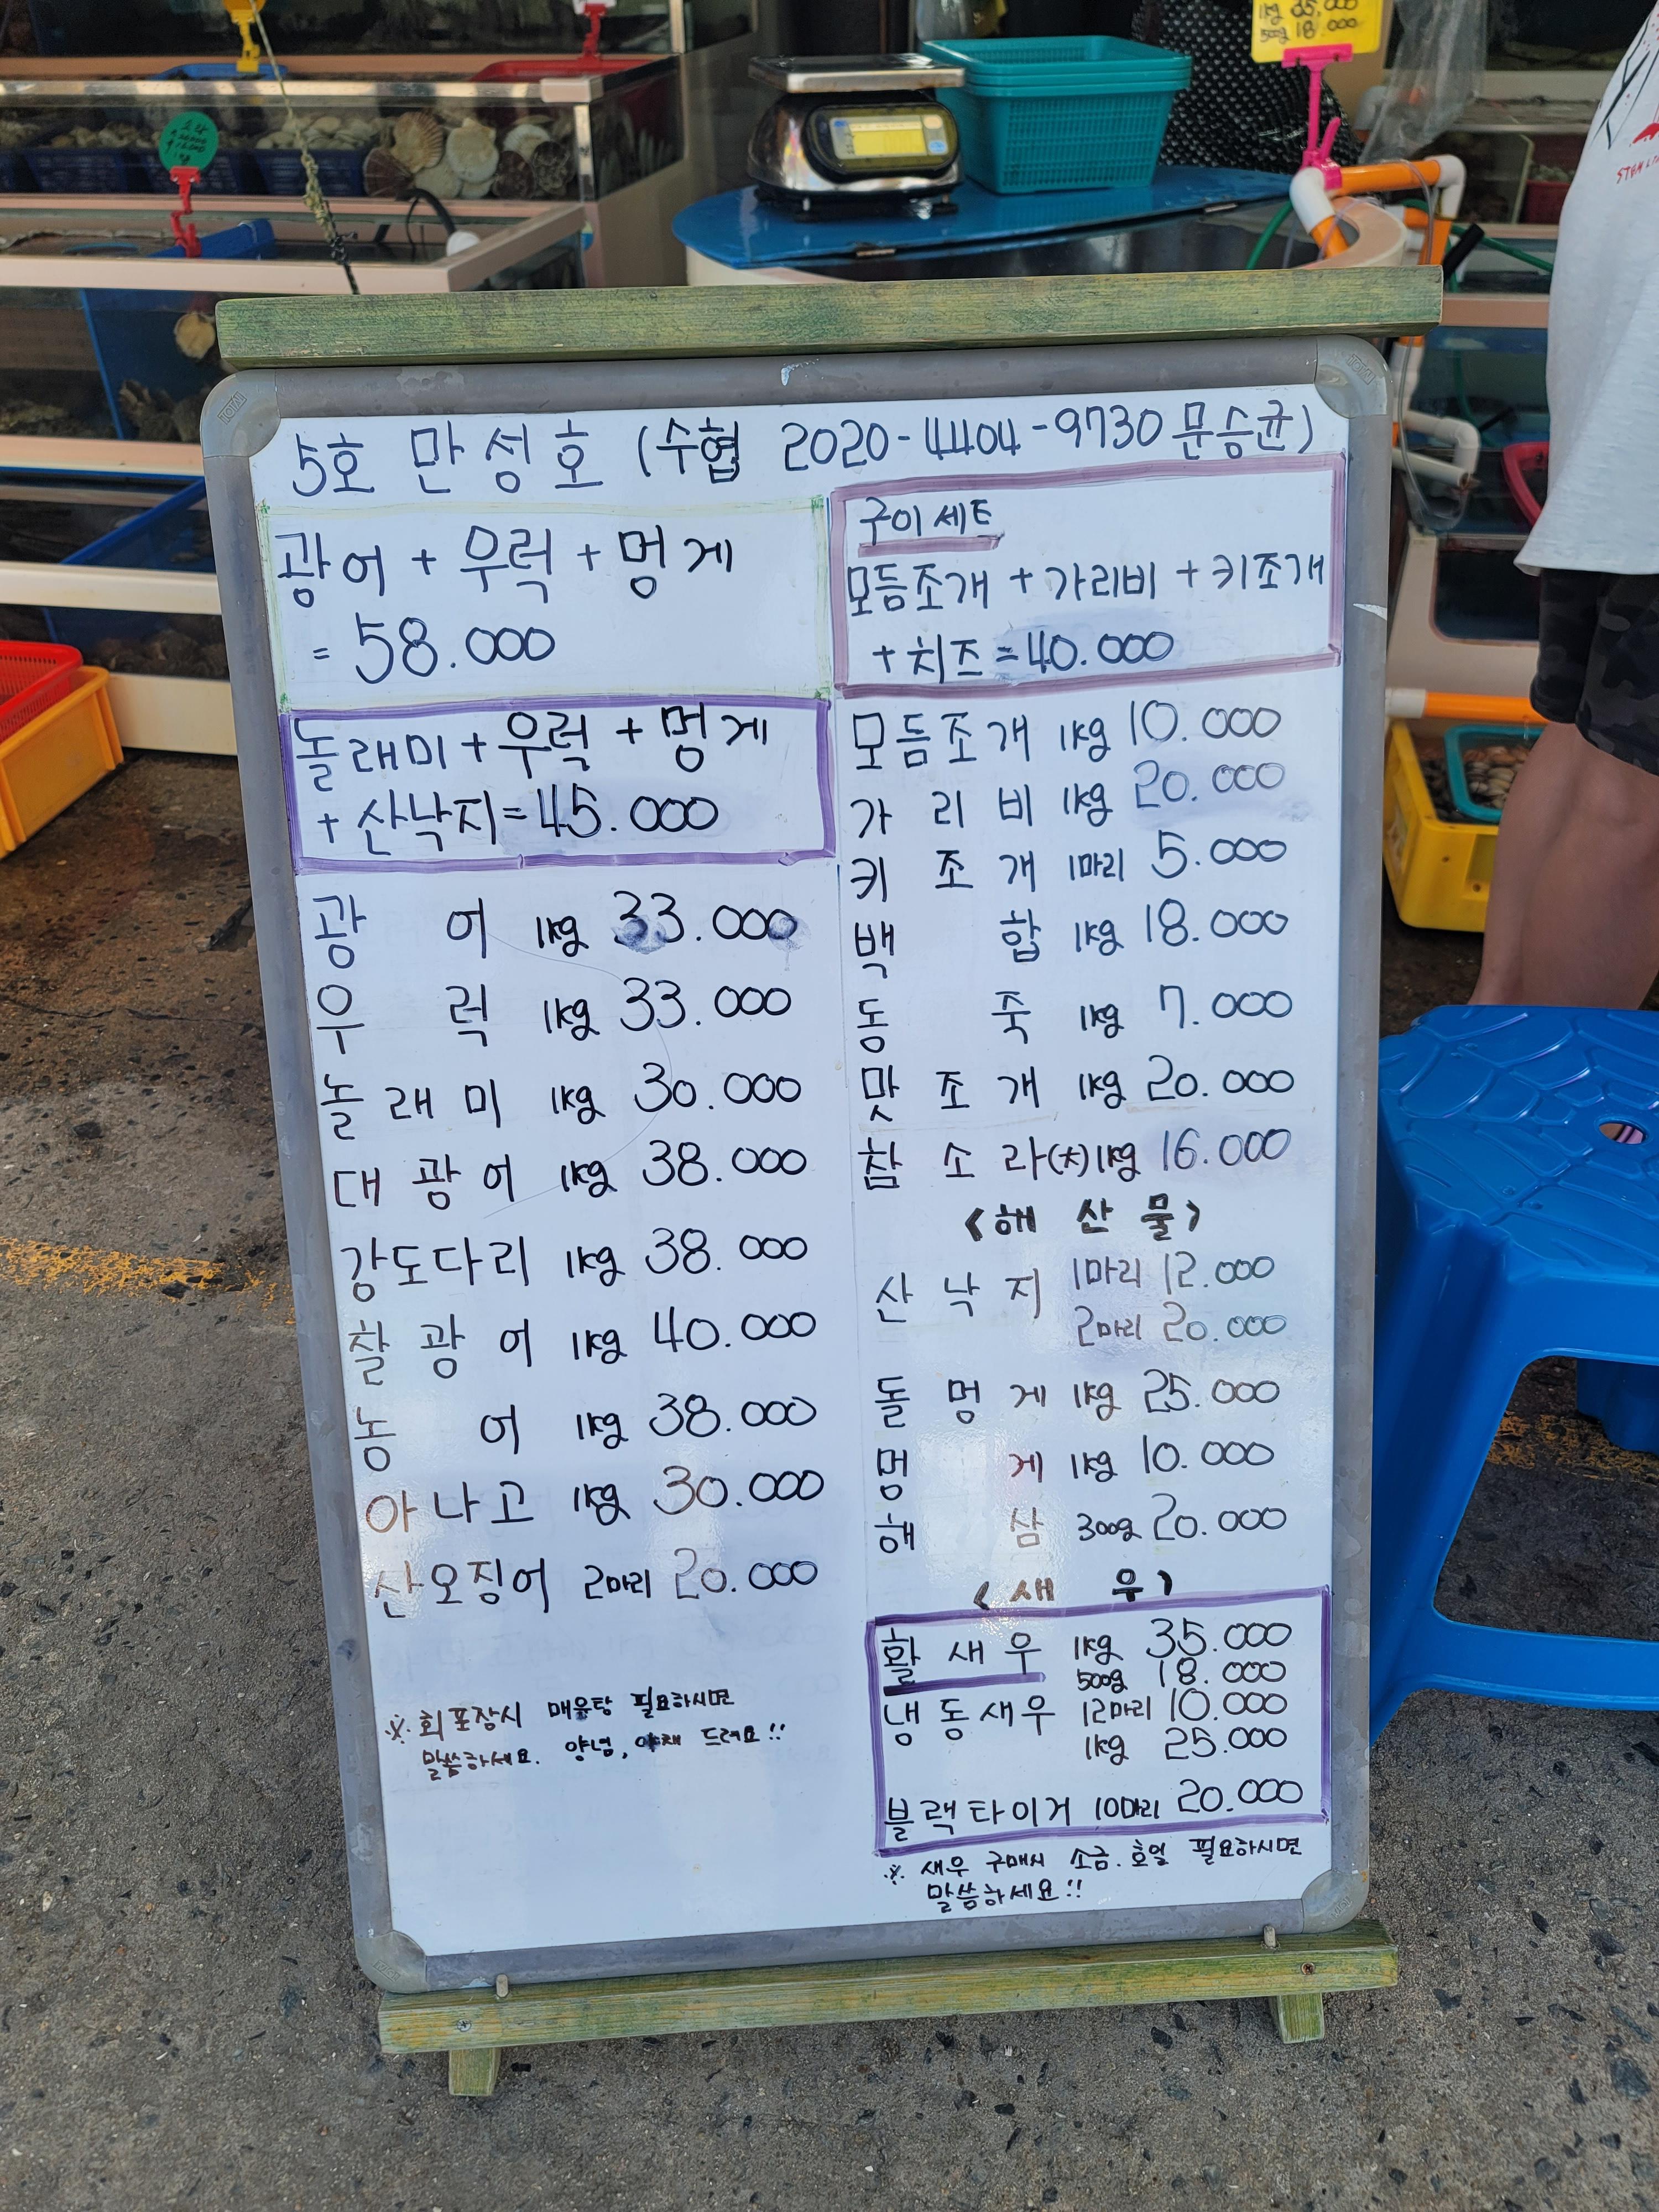 1kg 35,000
500g 18,000
5호 만성호 (수협 2020-4404-9730 문승균)
광어 + 우럭 + 멍게
= 58.000
놀래미 + 우럭 + 멍게
+ 산낙지 = 45.000
광어 1kg 33.000
우럭 1kg 33.000
놀래미 1kg 30.000
대광어 1kg 38.000
강도다리 1kg 38.000
찰광어 1kg 40.000
농어 1kg 38.000
아나고 1kg 30.000
산오징어 2마리 20.000
※ 회 포장시 매운탕 필요하시면
말씀하세요. 양념, 야채 드려요!!
구이 세트
모듬조개 + 가리비 + 키조개
+ 치즈 = 40.000
모듬조개 1kg 10.000
가리비 1kg 20.000
키조개 1마리 5.000
백합 1kg 18.000
동죽 1kg 7.000
맛조개 1kg 20.000
참소라(大) 1kg 16.000
<해산물>
산낙지 1마리 12.000
2마리 20.000
돌멍게 1kg 25.000
멍게 1kg 10.000
해삼 300g 20.000
<새우>
활새우 1kg 35.000
500g 18.000
냉동새우 12마리 10.000
1kg 25.000
블랙타이거 10마리 20.000
※ 새우 구매시 소금. 호일 필요하시면
말씀하세요!!